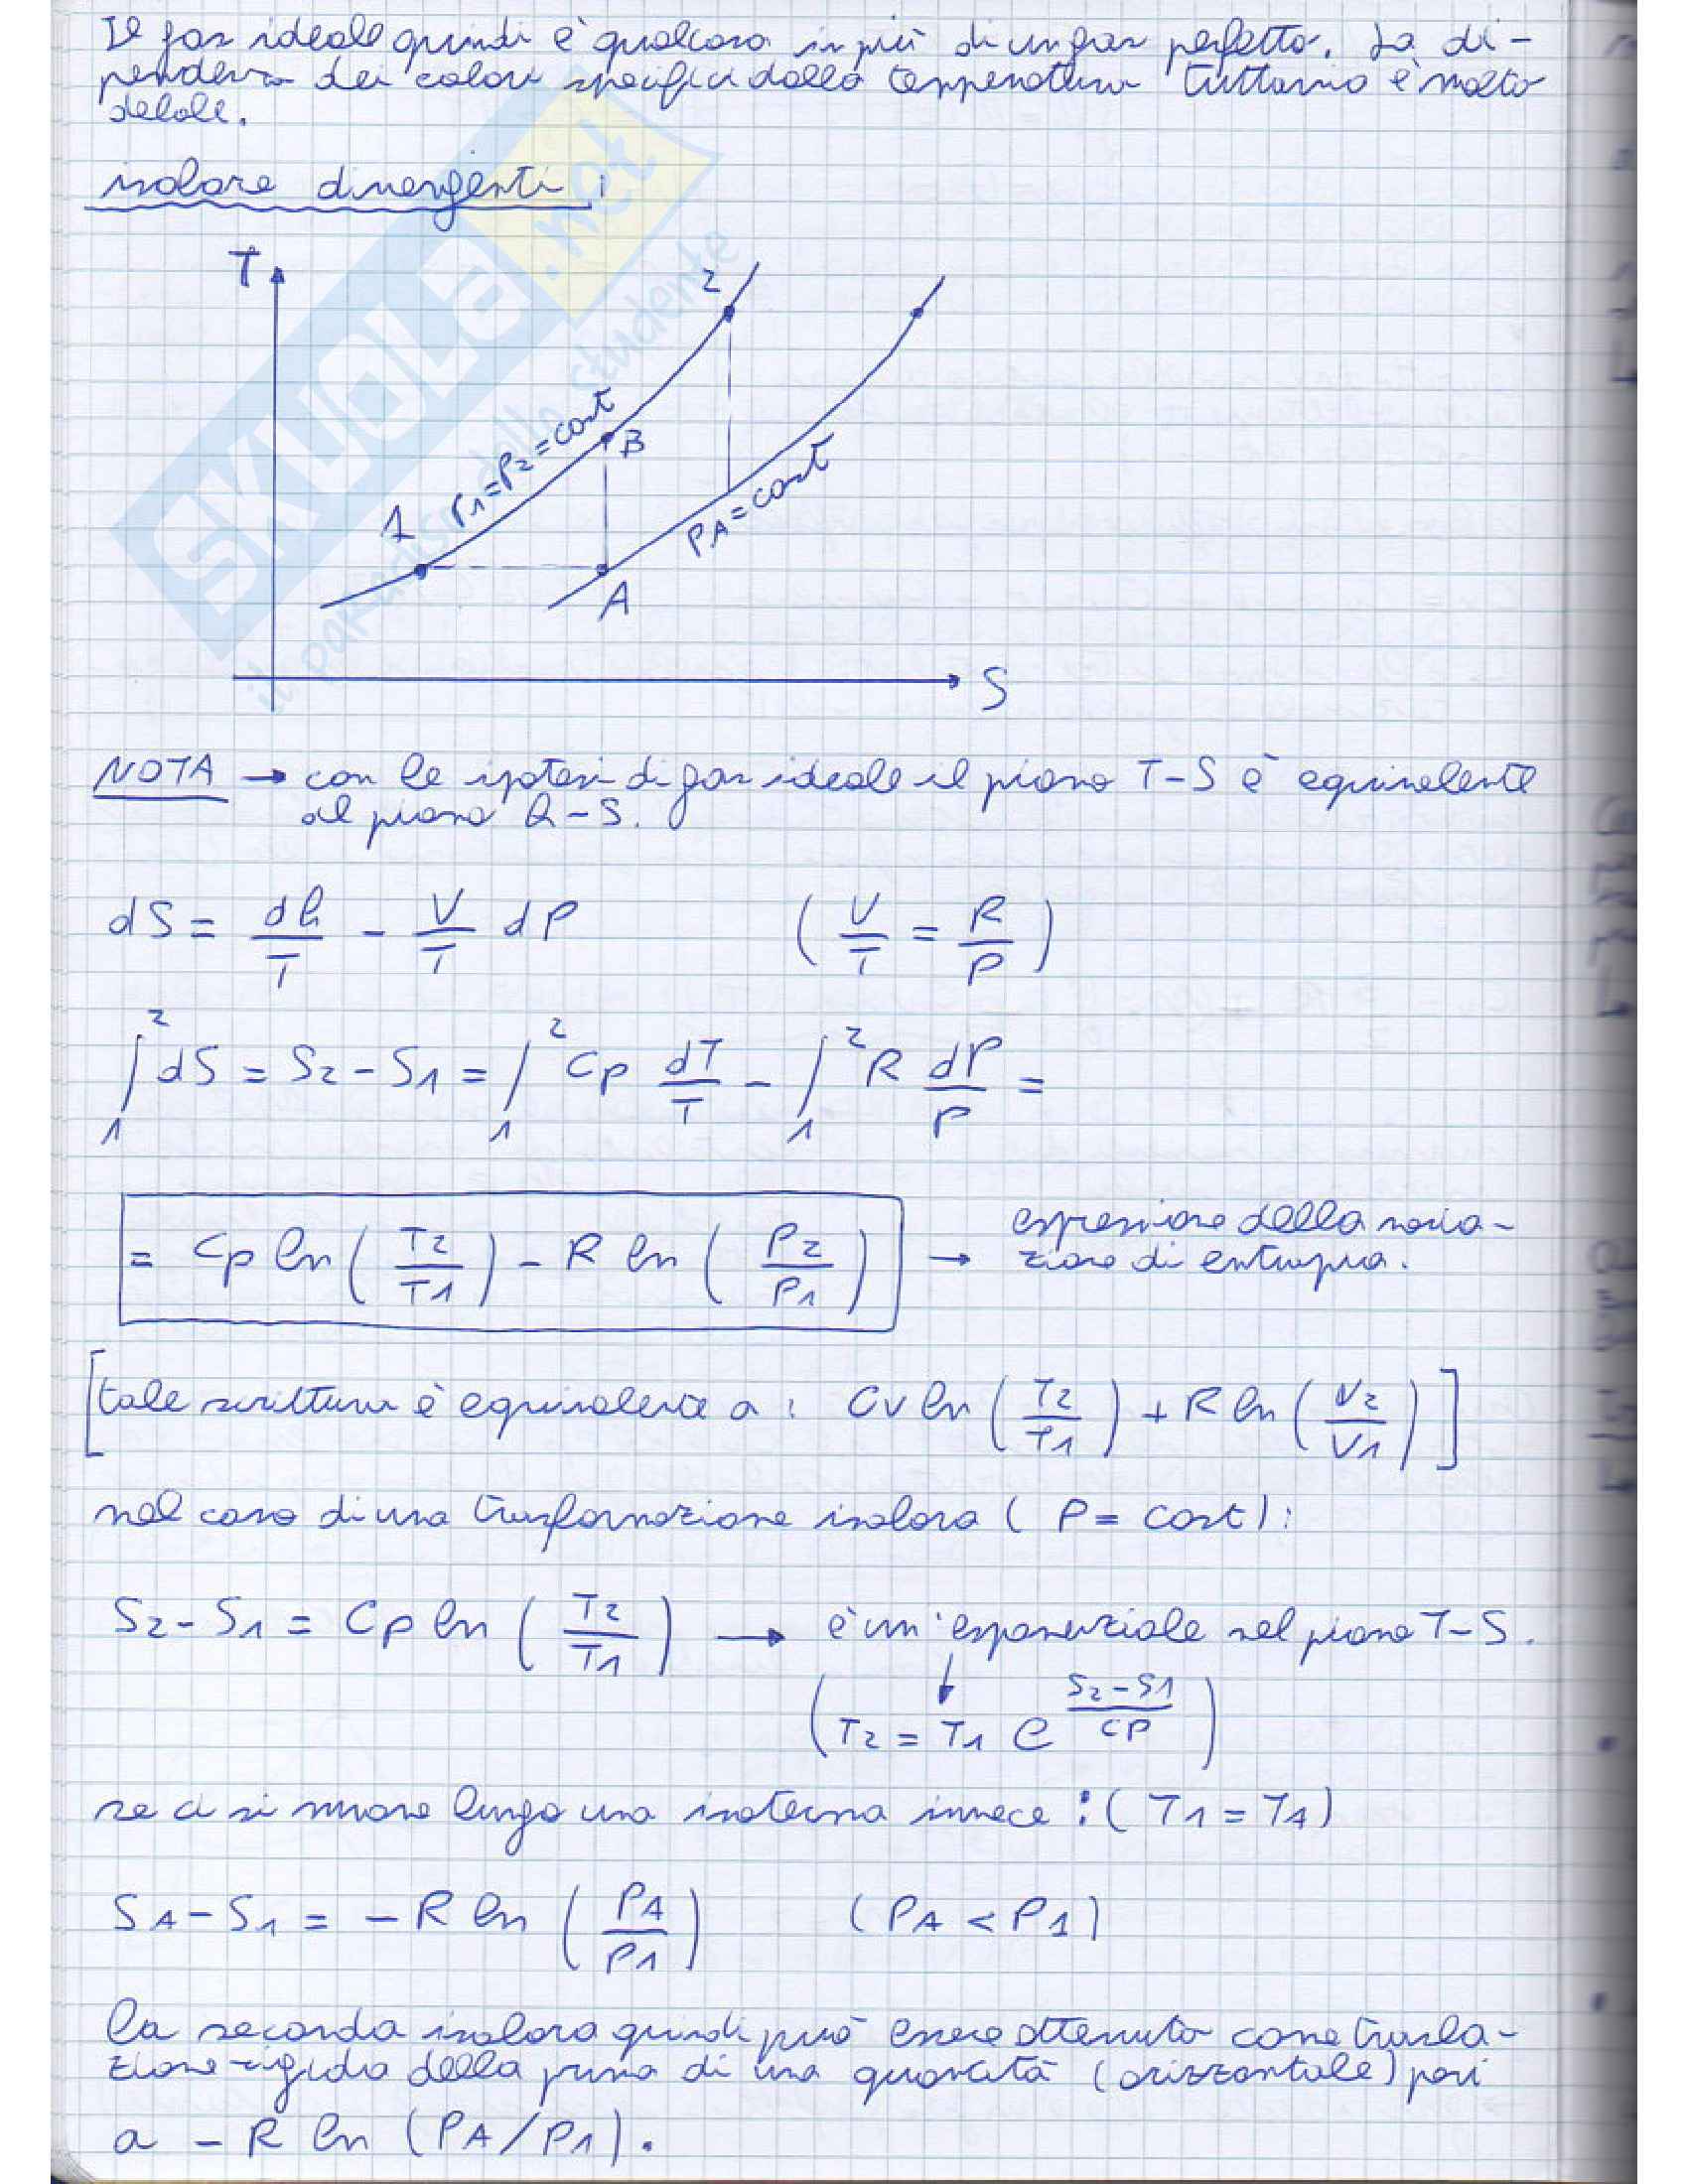 Il gas ideale quindi è qualcosa in più di un gas perfetto. La di-
pendenza dei calori specifici dalla temperatura tuttavia è molto
debole.
isobare divergenti:
T
2
B
P1=P2=cost
1
PA=cost
A
S
NOTA → con le ipotesi di gas ideale il piano T-S è equivalente
al piano h-S.
dS = dh/T - V/T dP (V/T = R/P)
∫₁² dS = S2-S1 = ∫₁² Cp dT/T - ∫₁² R dP/P =
= Cp ln (T2/T1) - R ln (P2/P1) → espressione della varia-
zione di entropia.
[tale scrittura è equivalente a: Cv ln (T2/T1) + R ln (V2/V1)]
nel caso di una trasformazione isobara (P=cost):
S2-S1 = Cp ln (T2/T1) → è un'esponenziale nel piano T-S.
↓
(T2 = T1 e^((S2-S1)/CP))
se ci si muove lungo una isoterma invece: (T1=TA)
SA-S1 = -R ln (PA/P1) (PA<P1)
la seconda isobara quindi può essere ottenuta come trasla-
zione rigida della prima di una quantità (orizzontale) pari
a -R ln (PA/P1).
SKUOLA.net
il paradiso dello studente